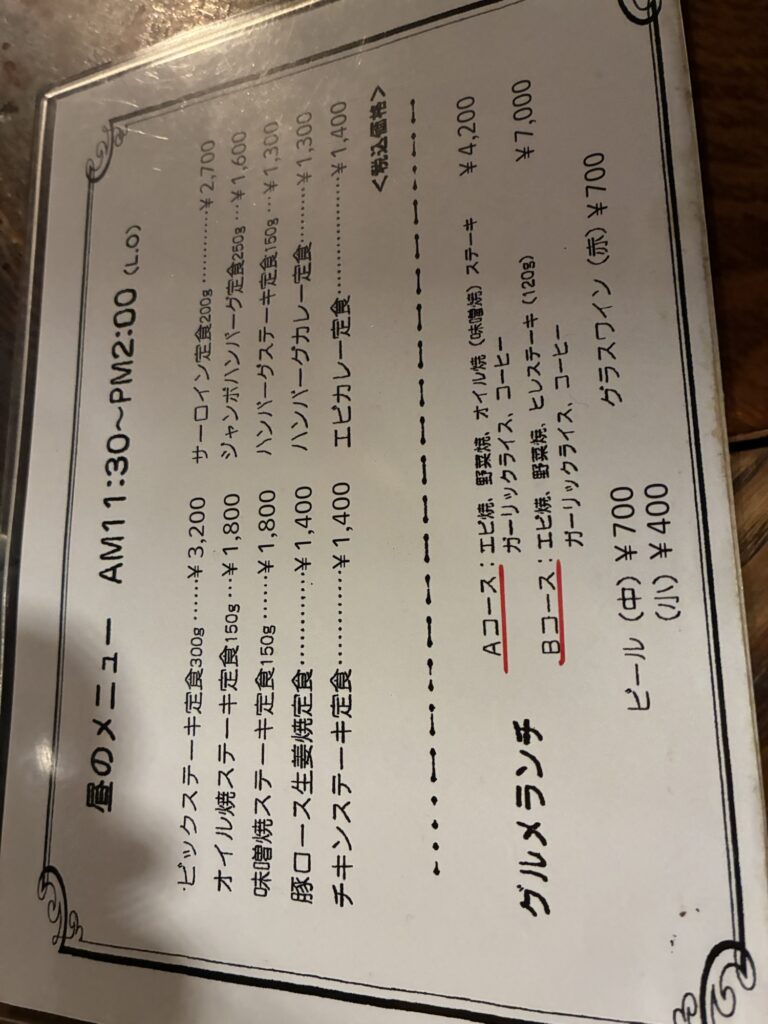 昼のメニュー AM11:30～PM2:00（L.O）
ビックステーキ定食300g……￥3,200 サーロイン定食200g…………￥2,700
オイル焼ステーキ定食150g…￥1,800 ジャンボハンバーグ定食250g…￥1,600
味噌焼ステーキ定食150g……￥1,800 ハンバーグステーキ定食150g…￥1,300
豚ロース生姜焼定食…………￥1,400 ハンバーグカレー定食………￥1,300
チキンステーキ定食…………￥1,400 エビカレー定食………………￥1,400
＜税込価格＞
グルメランチ
Aコース：エビ焼、野菜焼、オイル焼（味噌焼）ステーキ ￥4,200
ガーリックライス、コーヒー
Bコース：エビ焼、野菜焼、ヒレステーキ（120g） ￥7,000
ガーリックライス、コーヒー
ビール（中）￥700 グラスワイン（赤）￥700
（小）￥400